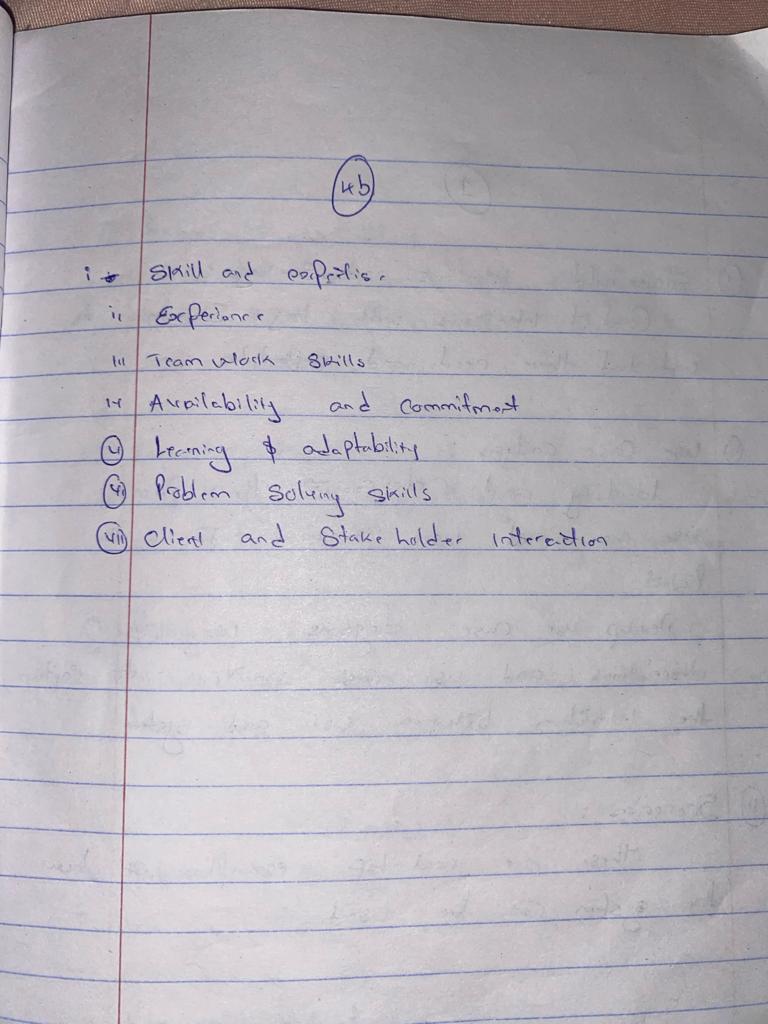 4b
i - Skill and expertise
ii Experience
iii Team work skills
iv Availability and commitment
v Learning & adaptability
vi Problem solving skills
vii Client and Stake holder interaction